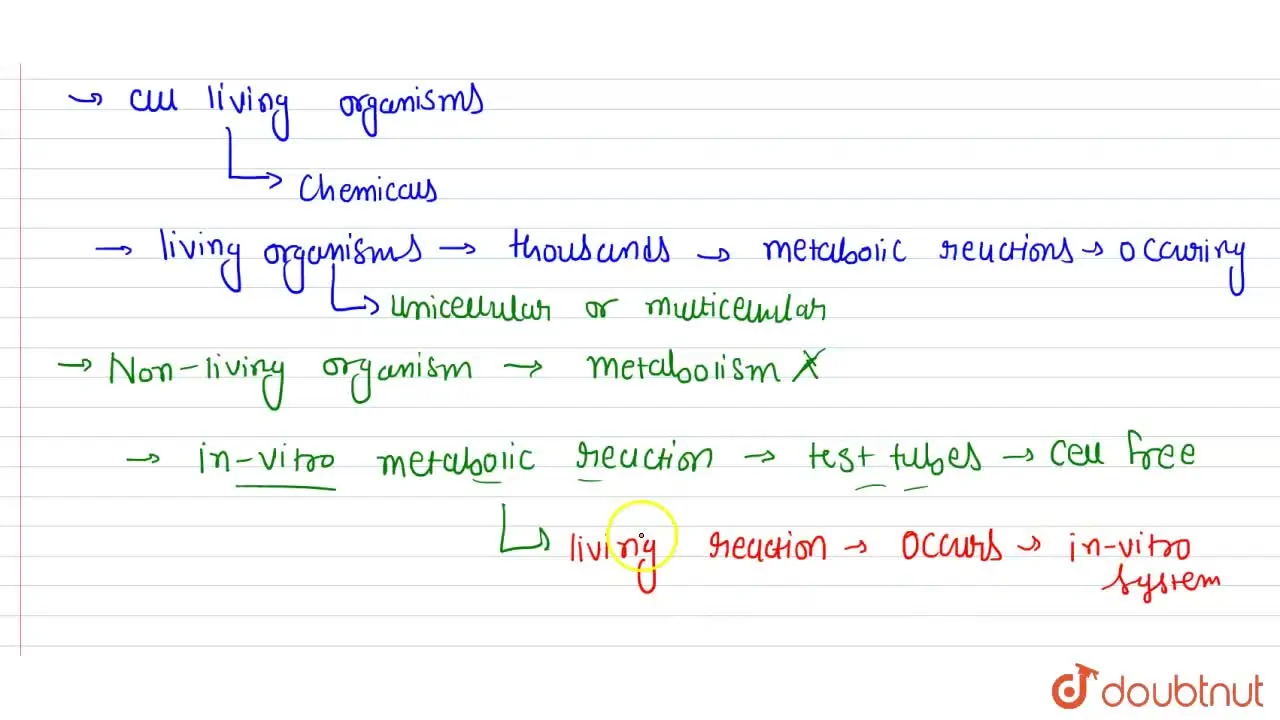 → all living organisms
→ Chemicals
→ living organisms → thousands → metabolic reactions → occuring
→ unicellular or multicellular
→ Non-living organism → metabolism X
→ in-vitro metabolic reaction → test tubes → cell free
→ living reaction → occurs → in-vitro
system
doubtnut